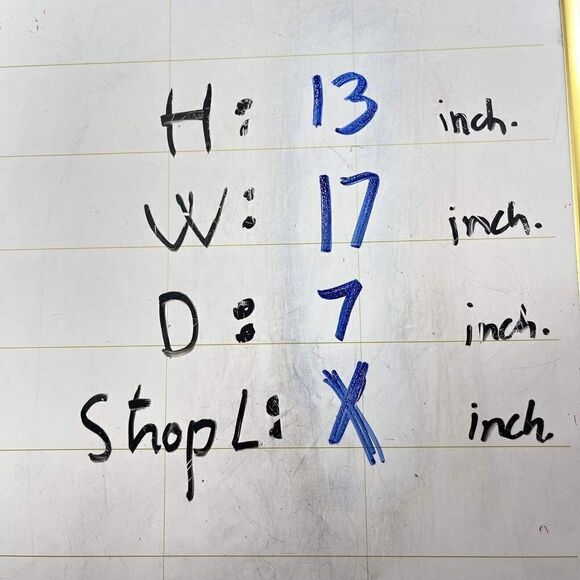 H: 13 inch.
W: 17 inch.
D: 7 inch.
Shop L: X inch.